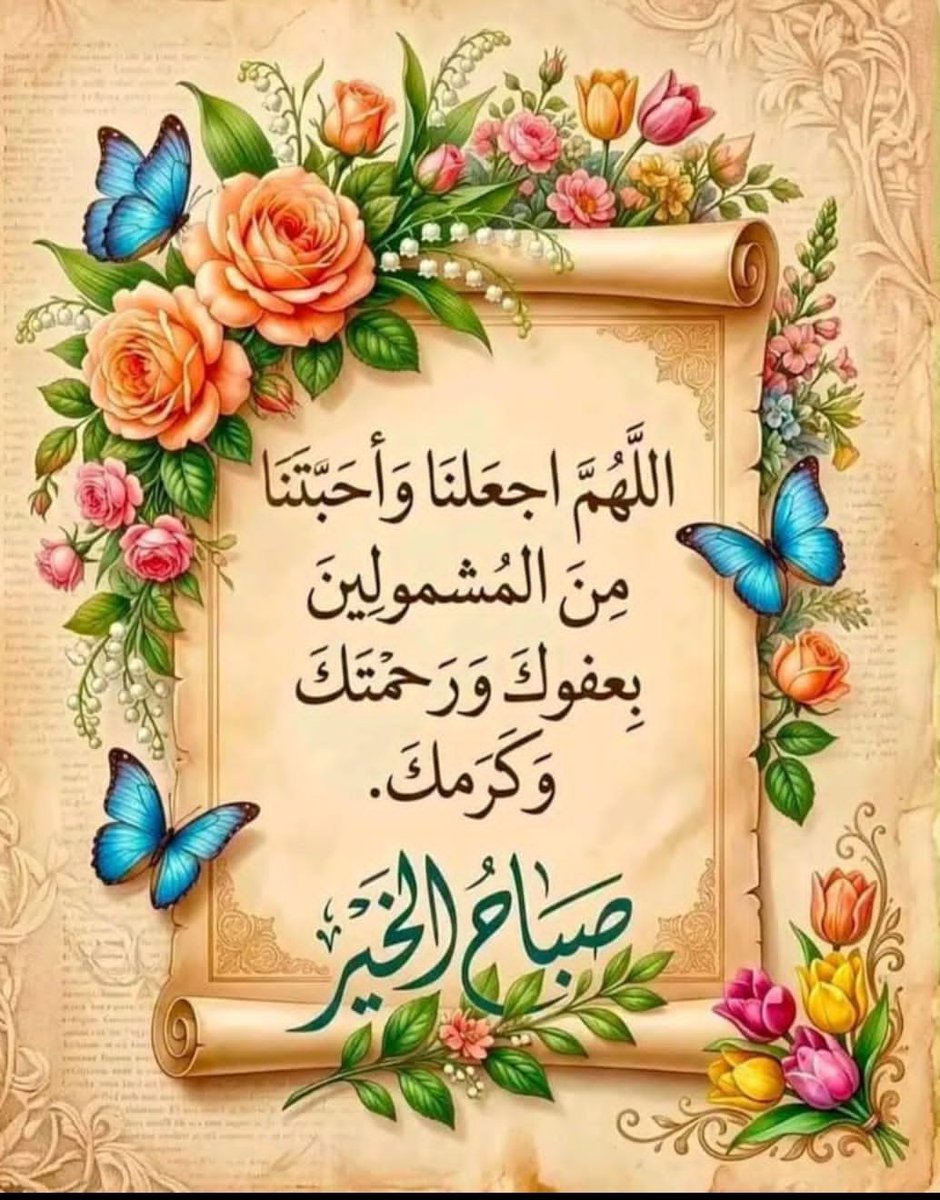 اللَّهُمَّ اجعَلنَا وَأحَبَّتَنَا
مِنَ المُشمولِينَ
بِعفوكَ وَرَحمْتَكَ
وَكَرَمكَ.
صَبَاحُ الخَيْر